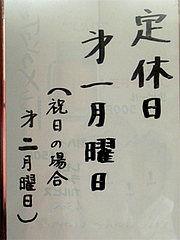 定休日
才一月曜日
（祝日の場合
才二月曜日）